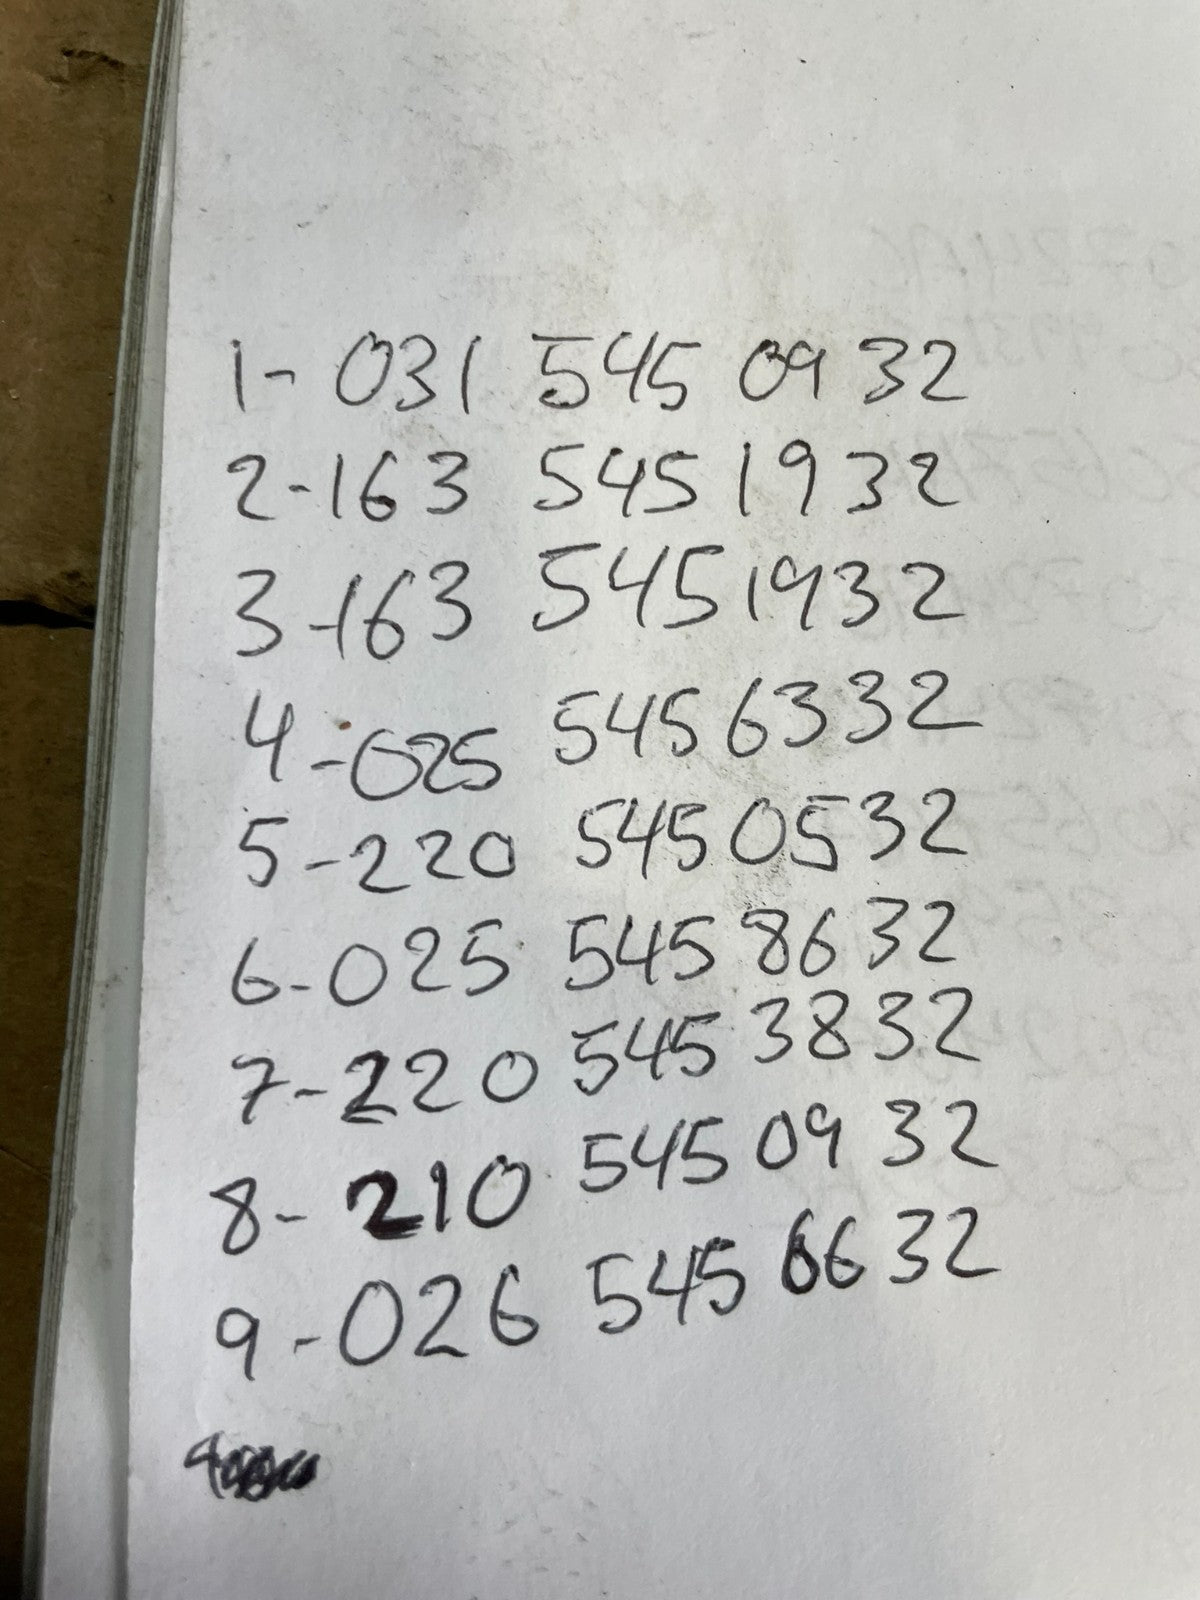 1- 031 545 0932
2-163 545 1932
3-163 545 1932
4-025 545 6332
5-220 545 0532
6-025 545 8632
7-220 545 3832
8-210 545 0932
9-026 545 6632